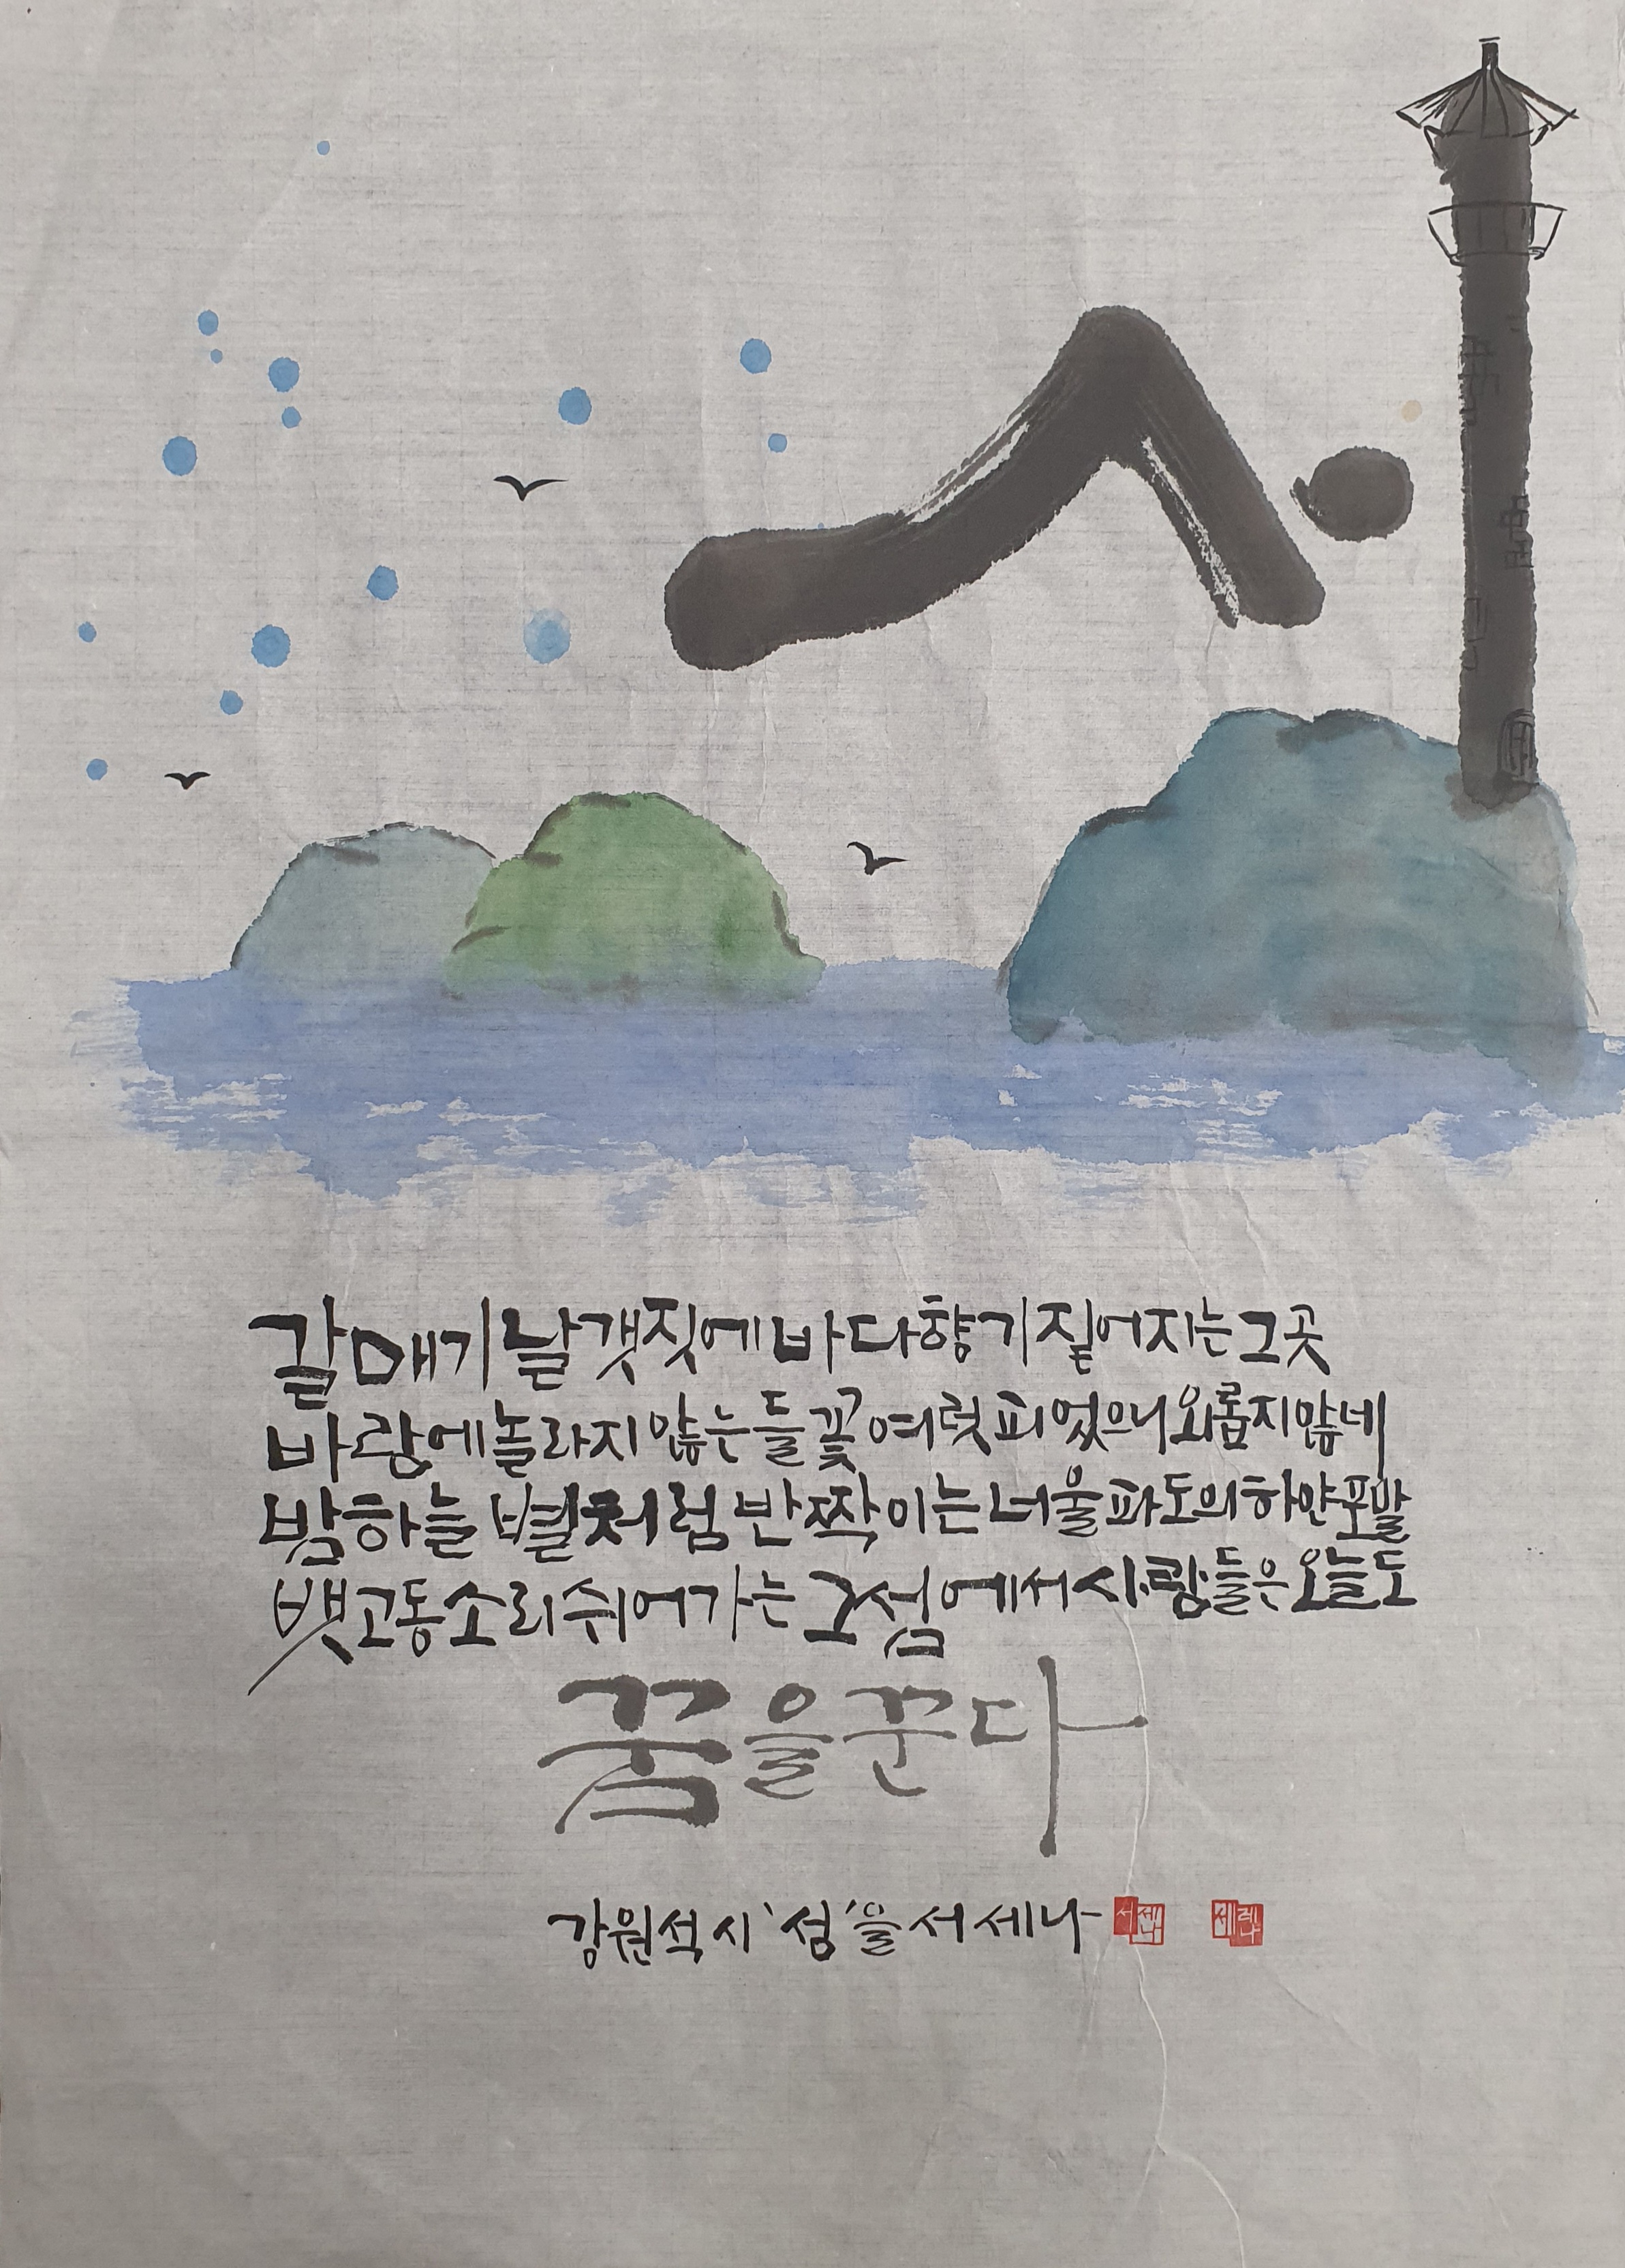 섬
갈매기 날갯짓에 바다향기 짙어지는 그곳
바람에 놀라지 않는 들꽃 여럿 피었으니 외롭지 않네
밤하늘 별처럼 반짝이는 너울파도의 하얀 포말
뱃고동소리 쉬어가는 그 섬에서 사람들은 오늘도
꿈을 꾼다
강원석 시 '섬'을 서세나 서세나 세레나